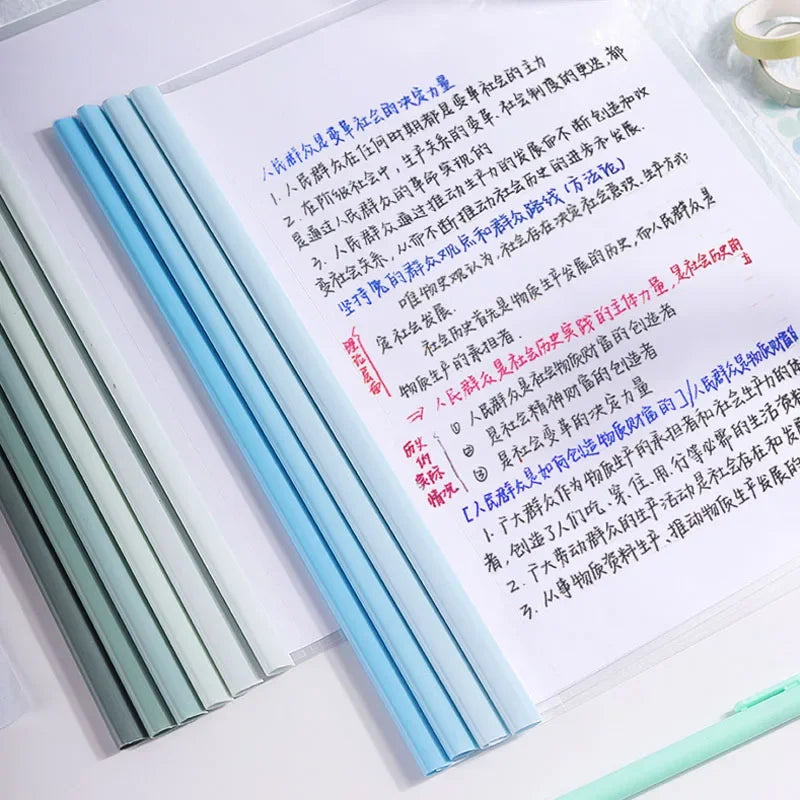 人民群众是变革社会的决定力量
1. 人民群众在任何时期都是变革社会的主力
2. 在阶级社会中，生产关系的变革、社会制度的更迭，都
是通过人民群众的革命实现的
3. 人民群众通过推动生产力的发展而不断创造和改
变社会关系，从而不断推动社会历史的进步和发展.
坚持党的群众观点和群众路线(方法论)
唯物史观认为，社会存在决定社会意识，生产方式
定社会发展.
社会历史首先是物质生产发展的历史，而人民群众是
物质生产的承担者.
理论层面
⇒ 人民群众是社会历史实践的主体力量，是社会历史的
历史的实际情况
① 人民群众是社会物质财富的创造者
② 是社会精神财富的创造者
③ 是社会变革的决定力量
[人民群众是如何创造物质财富的]/人民群众是物质财富的
1. 广大群众作为物质生产的承担者和社会生产力的体
者，创造了人们吃、穿、住、用、行等必需的生活资料
2. 广大劳动群众的生产活动是社会存在和发展
3. 从事物质资料生产、推动物质生产发展的